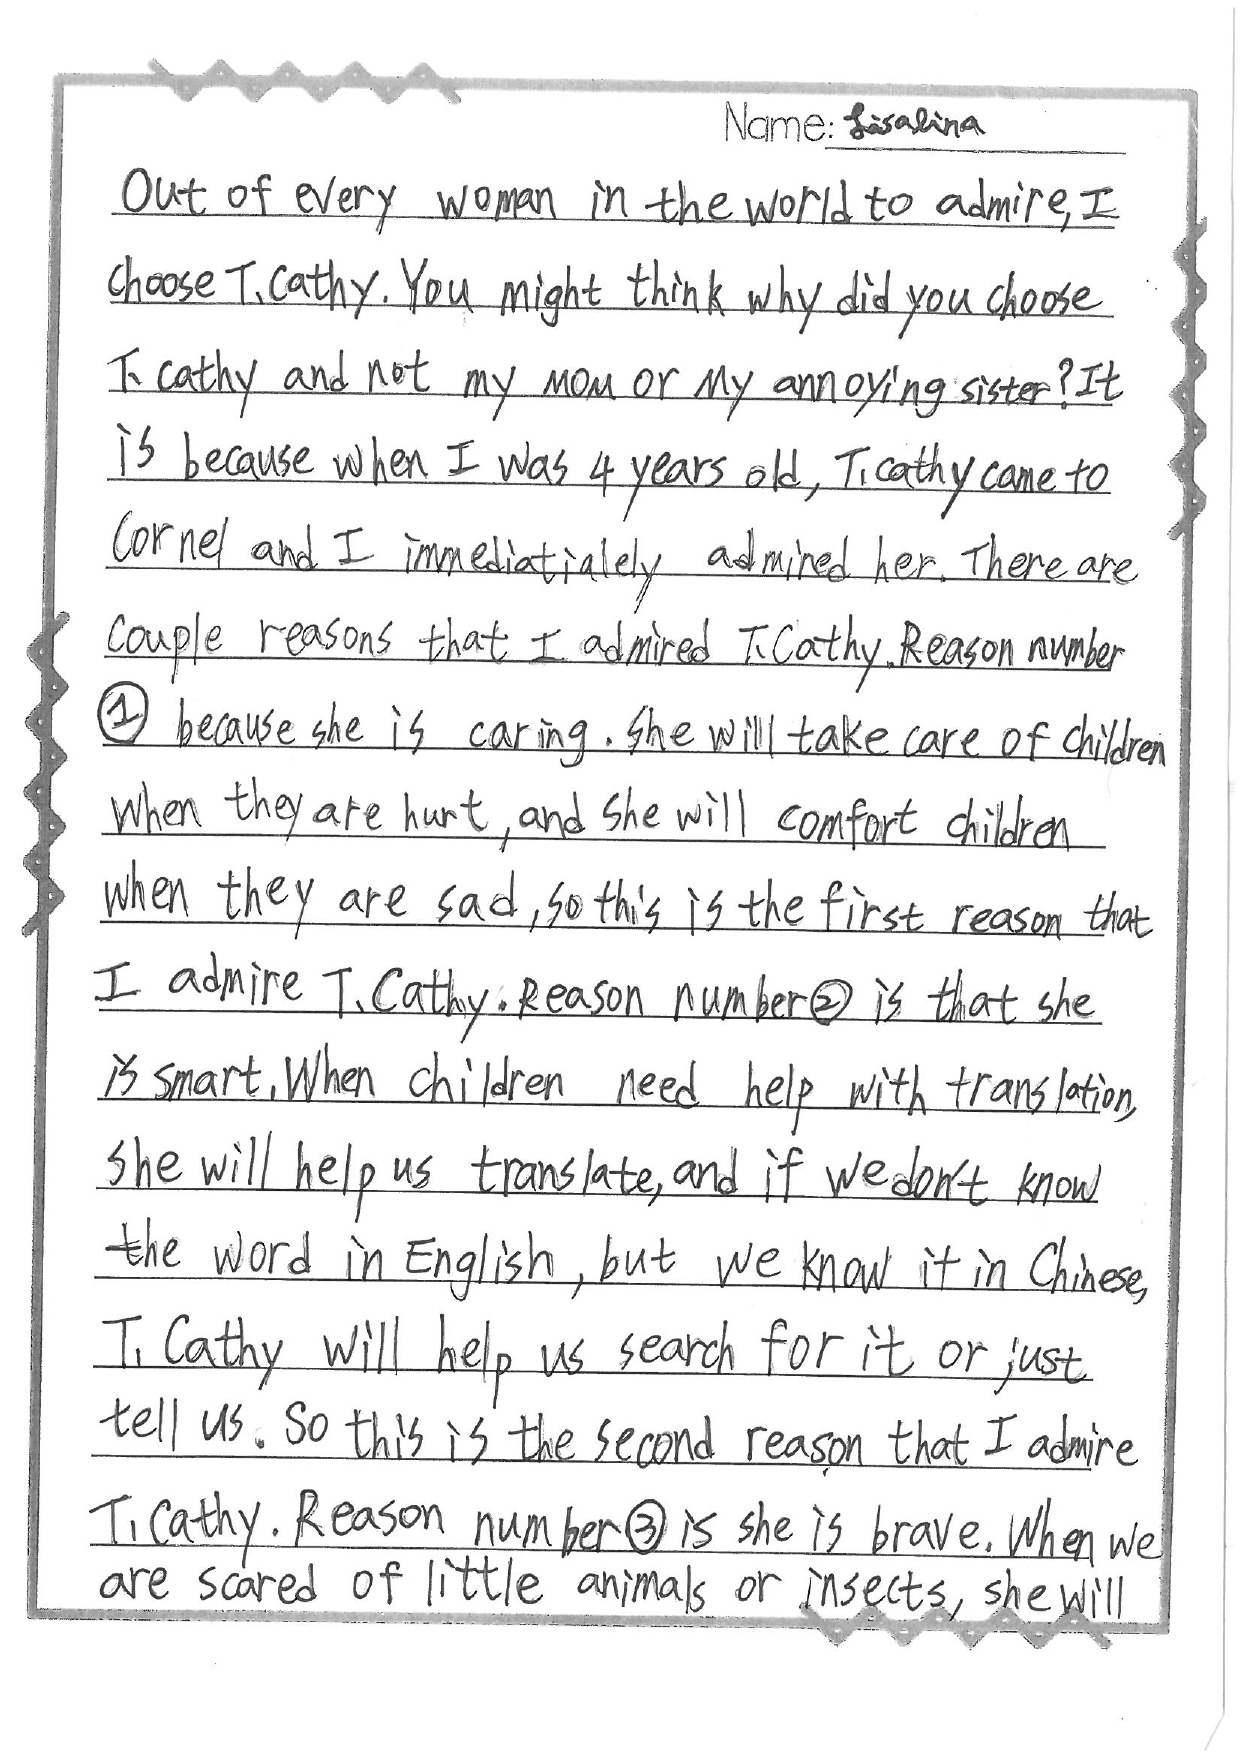 Name: Lisalina
Out of every woman in the world to admire, I
choose T. Cathy. You might think why did you choose
T. cathy and not my mom or my annoying sister? It
is because when I was 4 years old, T. cathy came to
Cornel and I immediatialely admired her. There are
couple reasons that I admired T. Cathy. Reason number
① because she is caring. She will take care of children
when they are hurt, and she will comfort children
when they are sad, so this is the first reason that
I admire T. Cathy. Reason number ② is that she
is smart. When children need help with translation,
she will help us translate, and if we don't know
the word in English, but we know it in Chinese,
T. Cathy will help us search for it or just
tell us. So this is the second reason that I admire
T. Cathy. Reason number ③ is she is brave. When we
are scared of little animals or insects, she will